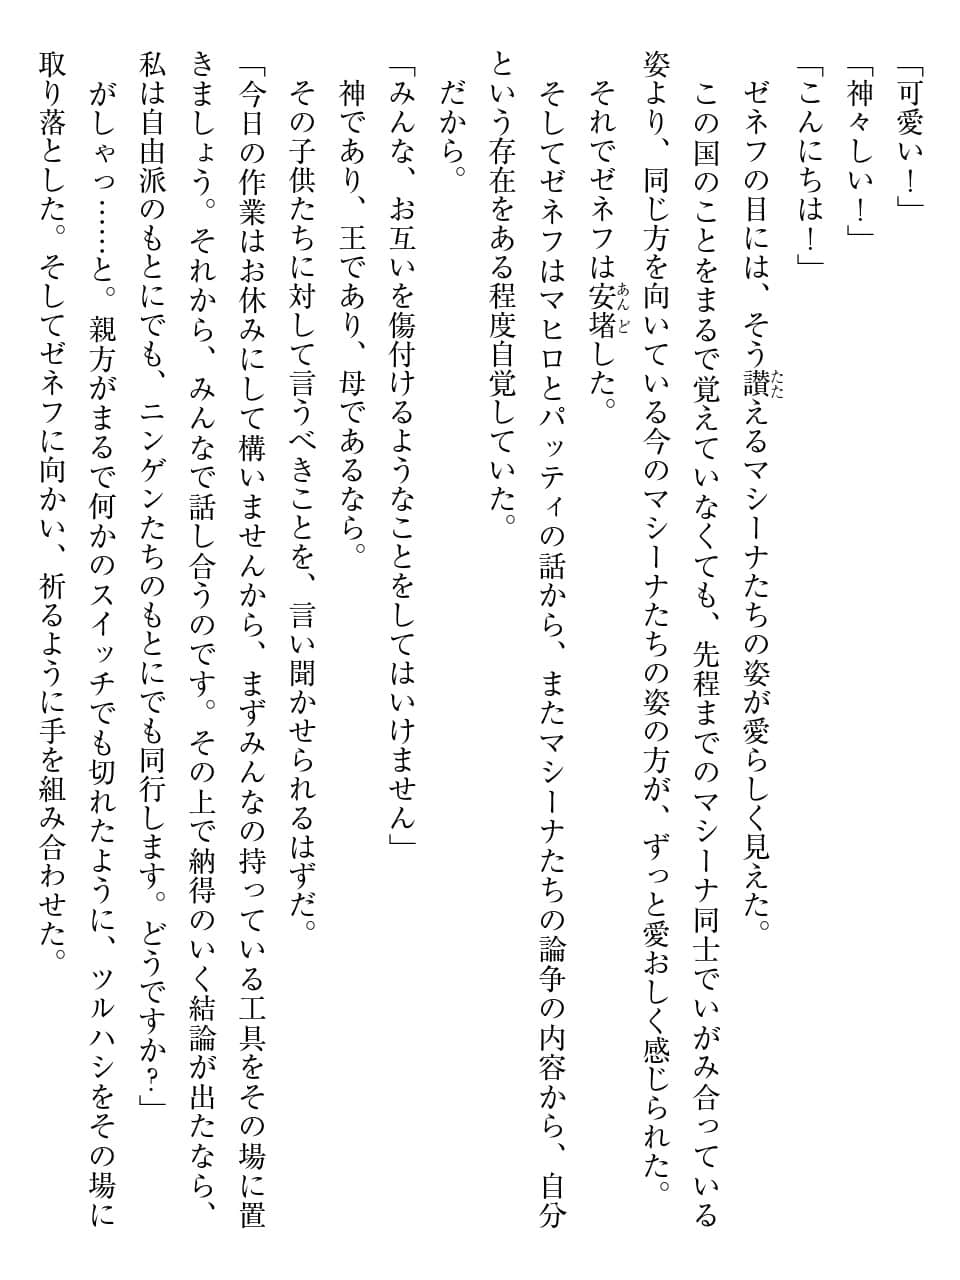 「可愛い！」
「神々しい！」
「こんにちは！」
　ゼネフの目には、そう讃えるマシーナたちの姿が愛らしく見えた。
　この国のことをまるで覚えていなくても、先程までのマシーナ同士でいがみ合っている
姿より、同じ方を向いている今のマシーナたちの姿の方が、ずっと愛おしく感じられた。
　それでゼネフは安堵した。
　そしてゼネフはマヒロとパッティの話から、またマシーナたちの論争の内容から、自分
という存在をある程度自覚していた。
　だから。
「みんな、お互いを傷付けるようなことをしてはいけません」
　神であり、王であり、母であるなら。
　その子供たちに対して言うべきことを、言い聞かせられるはずだ。
「今日の作業はお休みにして構いませんから、まずみんなの持っている工具をその場に置
きましょう。それから、みんなで話し合うのです。その上で納得のいく結論が出たなら、
私は自由派のもとにでも、ニンゲンたちのもとにでも同行します。どうですか？」
　がしゃっ……と。親方がまるで何かのスイッチでも切れたように、ツルハシをその場に
取り落とした。そしてゼネフに向かい、祈るように手を組み合わせた。